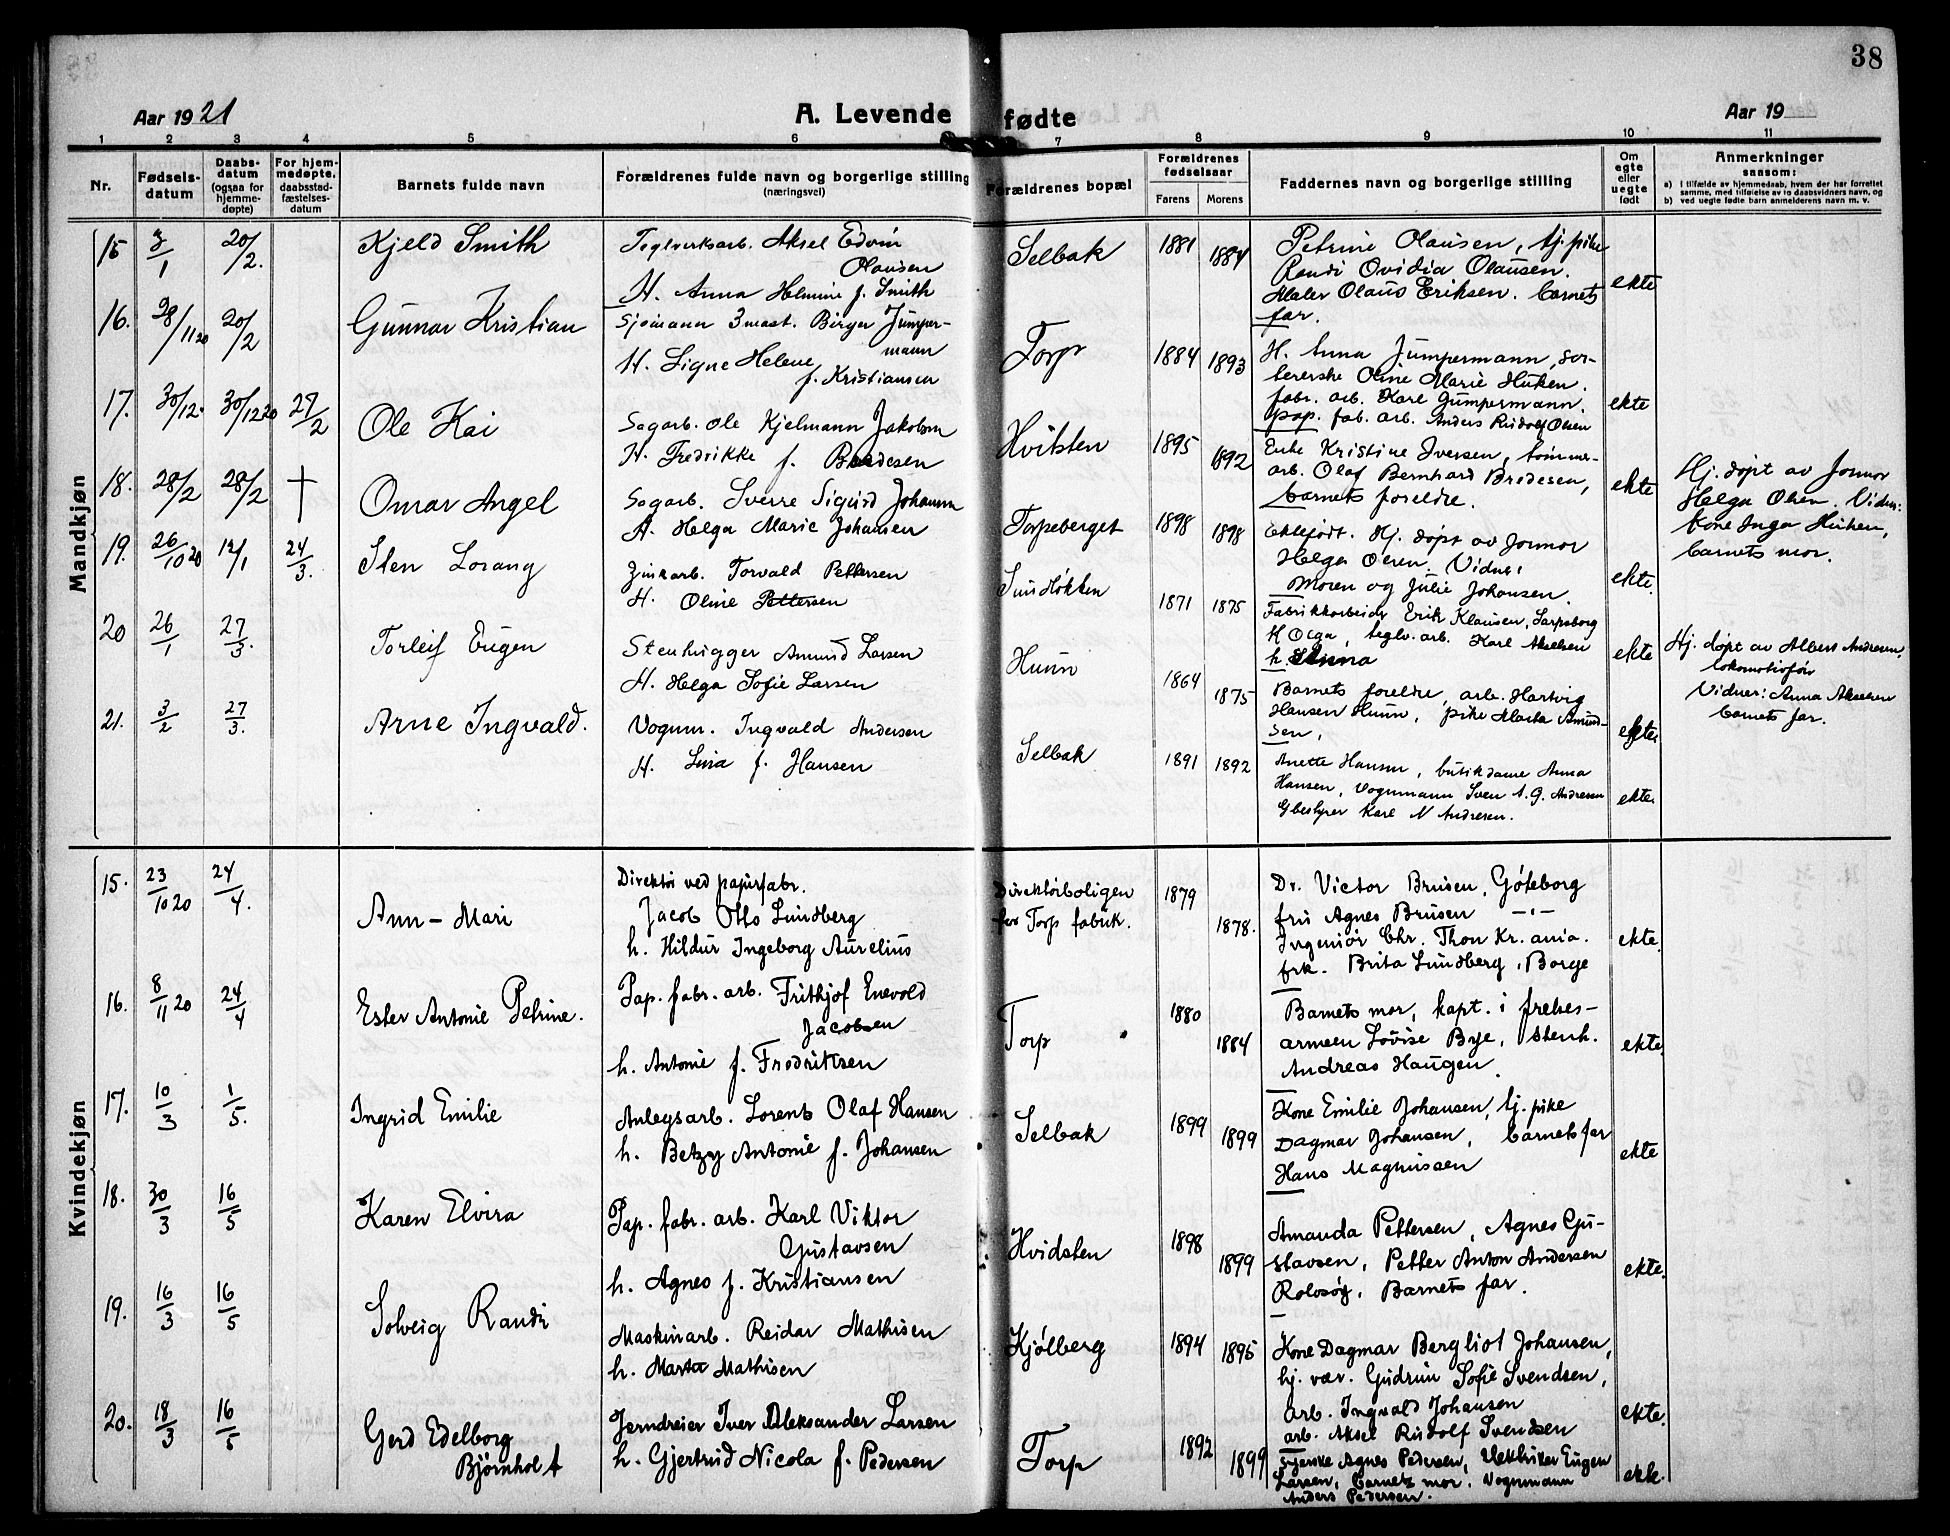 38
Aar 1921
A. Levende fødte
Aar 19
1 2 3 4 5 6 7 8 9 10 11
Nr.
Fødsels-
datum
Daabs-
datum
(ogsaa for
hjemme-
døpte)
For hjem-
medøpte,
daabsstad-
fæstelses-
datum
Barnets fulde navn
Forældrenes fulde navn og borgerlige stilling
(næringsvei)
Forældrenes bopæl
Forældrenes
fødselsaar
Farens Morens
Faddernes navn og borgerlige stilling
Om
egte
eller
uegte
født
Anmerkninger
saasom:
a) i tilfælde av hjemmedaab, hvem der har forrettet
samme, med tilføielse av to daabsvidners navn, og
b) ved uegte fødte barn anmelderens navn m. v.
Mandkjøn
15 3/1 20/2. Kjeld Smith
Teglverksarb. Aksel Edvin
Olausen
H. Anna Helmine f. Smith
Selbak 1881 1884
Petrine Olausen, tj. pike
Randi Ovidia Olausen.
Maler Olaus Eriksen. barnets
far.
ekte
16. 28/11 20 20/2 Gunnar Kristian
Sjømann 3 mast. Birger Jumper-
mann
H. Signe Helene
f. Kristiansen
Torp 1884 1893
H. Anna Jumpermann, sor-
tererske Oline Marie Huken.
fabr. arb. Karl Gumpermann.
pap. fab. arb. Anders Rudolf Olsen
ekte
17. 30/12. 30/12 20 27/2 Ole Kai
Sagarb. Ole Kjelmann Jakobsen
H. Fredrikke f. Bredesen
Hvitsten 1895 1892
Enke Kristine Iversen, tømmer-
arb. Olaf Bernhard Bredesen,
barnets foreldre.
ekte
18. 28/2 28/2 † Omar Angel
Sagarb. Sverre Sigurd Johansen
H. Helga Marie Johansen
Torpeberget 1898 1898
Ektefødt. Hj. døpt av Jormor
Helga Olsen. Vidner:
Moren og Julie Johansen.
ekte.
Hj. døpt av Jormor
Helga Olsen. Vidner:
kone Inga Huken,
barnets mor.
19. 26/10 20 12/1 24/3. Sten Lorang
Zinkarb. Torvald Pettersen
H. Oline Pettersen
Sundløkken 1871 1875
Fabrikkarbeider Erik Klausen, Sarpsborg
H Olga, teglv. arb. Karl Akselsen
h. Anna
ekte
Hj. døpt av Albert Andresen,
lokomotivfør
Vidner: Anna Akselsen
barnets far.
20 26/1 27/3. Torleif Eugen
Stenhugger Amund Larsen
H. Helga Sofie Larsen
Hunn 1864 1875
Barnets foreldre, arb. Hartvig
Hansen Hunn, pike Marta Amund-
sen,
ekte.
21. 3/2 27/3. Arne Ingvald.
Vognm. Ingvald Andersen
H. Lina f. Hansen
Selbak 1891 1892
Anette Hansen, butikdame Anna
Hansen, Vognmann Sven A. G. Andresen
Gbestyrer Karl N Andresen.
ekte.
Kvindekjøn
15. 23/10 20 24/4. Ann-Mari
Direktør ved papirfabr.
Jacob Otto Lundberg
h. Hildur Ingeborg Aurelius
Direktørboligen
for Torp fabrik.
1879 1878.
Dr. Victor Brusen, Göteborg
fru Agnes Brusen —"—
Ingeniør Chr. Thon Kr. ania.
frk. Brita Lundberg, Borge
ekte.
16. 8/11 20 24/4 Ester Antonie Petrine.
Pap. fabr. arb. Frithjof Enevold
Jacobsen
h. Antonie f. Fredriksen
Torp 1880 1884
Barnets mor, kapt. i frelses-
armeen Lovise Bye, stenh.
Andreas Haugen.
ekte.
17. 10/3 1/5. Ingrid Emilie
Anlegsarb. Lorents Olaf Hansen
h. Betzy Antonie f. Johansen
Selbak 1899 1899
Kone Emilie Johansen, tj. pike
Dagmar Johansen, barnets far
Hans Magnussen
ekte
18. 30/3 16/5 Karen Elvira
Pap. fabr. arb. Karl Viktor
Gustavsen
h. Agnes f. Kristiansen
Hvidsten 1898 1899
Amanda Pettersen, Agnes Gu-
stavsen, Petter Anton Andersen
Rolvsøy, Barnets far.
ekte.
19. 16/3 16/5 Solveig Randi
Maskinarb. Reidar Mathisen
h. Marta Mathisen
Kjølberg 1894 1895
Kone Dagmar Bergliot Johansen,
hj. vær. Gudrun Sofie Svendsen,
arb. Ingvald Johansen
arb. Aksel Rudolf Svendsen
ekte.
20. 18/3 16/5 Gerd Edelborg
Bjørnholt
Jerndreier Iver Aleksander Larsen
h. Gjertrud Nicola f. Pedersen
Torp 1892 1899
Tjenke Agnes Pedersen, Elektriker Eugen
Larsen, barnets mor, Vognmann
Anders Pedersen.
ekte.